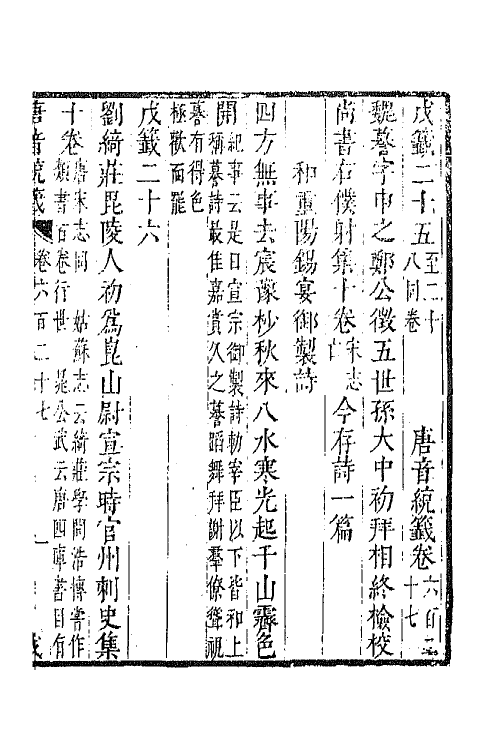 戊籤二十五至二十八同卷 唐音統籤卷六百二十七
魏謩字申之鄭公徵五世孫大中初拜相終檢校
尚書右僕射集十卷宋志亡今存詩一篇
和重陽錫宴御製詩
四方無事去宸豫杪秋來八水寒光起千山霽色
開紀事云是日宣宗御製詩勑宰臣以下皆和上
稱謩詩最佳嘉賞久之謩蹈舞拜謝羣僚聳視
謩有得色
極歡而罷
戊籤二十六
劉綺莊毘陵人初爲崑山尉宣宗時官州刺史集
十卷唐宋志同 姑蘇志云綺莊學問浩博嘗作
類書百卷行世 晁公武云唐四庫書目有
唐音統籤 卷六百二十七 一